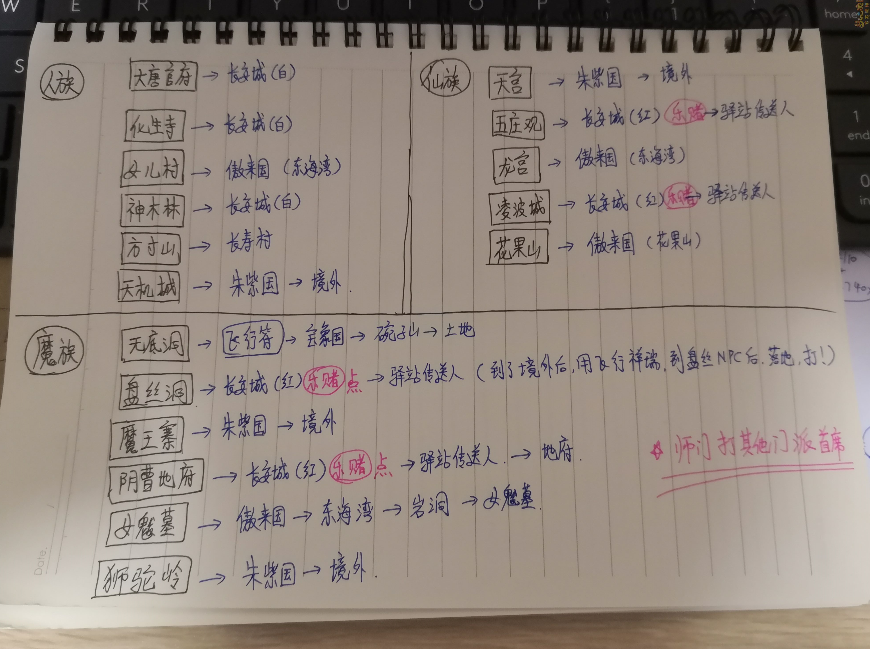 人族
大唐官府 → 长安城(白)
化生寺 → 长安城(白)
女儿村 → 傲来国 (东海湾)
神木林 → 长安城(白)
方寸山 → 长寿村
天机城 → 朱紫国 → 境外.
仙族
天宫 → 朱紫国 → 境外
五庄观 → 长安城(红) 乐赌 → 驿站传送人
龙宫 → 傲来国 (东海湾)
凌波城 → 长安城(红) 乐赌 → 驿站传送人
花果山 → 傲来国 (花果山)
魔族
无底洞 → 飞行符 → 宝象国 → 碗子山 → 土地
盘丝洞 → 长安城(红) 乐赌点 → 驿站传送人 (到了境外后,用飞行祥瑞,到盘丝NPC后.落地,打!)
魔王寨 → 朱紫国 → 境外
阴曹地府 → 长安城(红) 乐赌点 → 驿站传送人. → 地府.
女魃墓 → 傲来国 → 东海湾 → 岩洞 → 女魃墓.
狮驼岭 → 朱紫国 → 境外.
师门打其他门派首席
Date.
W E R T Y U I O P
home
S
4
1
end
0
in